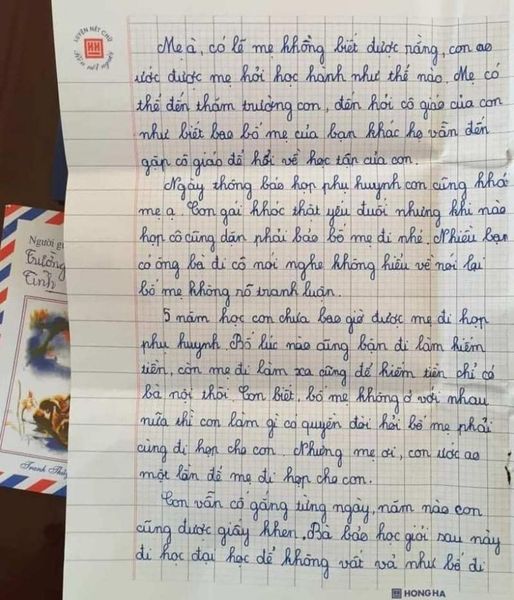 LUYỆN NÉT CHỮ
HH
Rèn nét người
Mẹ à, có lẽ mẹ không biết được rằng, con ao
ước được mẹ hỏi học hành như thế nào. Mẹ có
thể đến thăm trường con, đến hỏi cô giáo của con
như biết bao bố mẹ của bạn khác họ vẫn đến
gặp cô giáo để hỏi về học tập của con.
Ngày thông báo họp phụ huynh con cũng khó
mẹ ạ. Con gái khóc thật yếu đuối nhưng khi nào
họp cô cũng dặn phải bảo bố mẹ đi nhé. Nhiều bạn
có ông bà đi cô nói nghe không hiểu về nói lại
bố mẹ không rõ tranh luận.
5 năm học con chưa bao giờ được mẹ đi họp
phụ huynh. Bố lúc nào cũng bận đi làm kiếm
tiền, còn mẹ đi làm xa cũng để kiếm tiền chỉ có
bà nội thôi. Con biết, bố mẹ không ở với nhau
nữa thì con làm gì có quyền đòi hỏi bố mẹ phải
cùng đi họp cho con. Nhưng mẹ ơi, con ước ao
một lần để mẹ đi họp cho con.
Con vẫn cố gắng từng ngày, năm nào con
cũng được giấy khen. Bà bảo học giỏi sau này
đi học đại học để không vất vả như bố đi
HH HONG HA
Người g
Trưởng
Tỉnh
Tranh Thủy